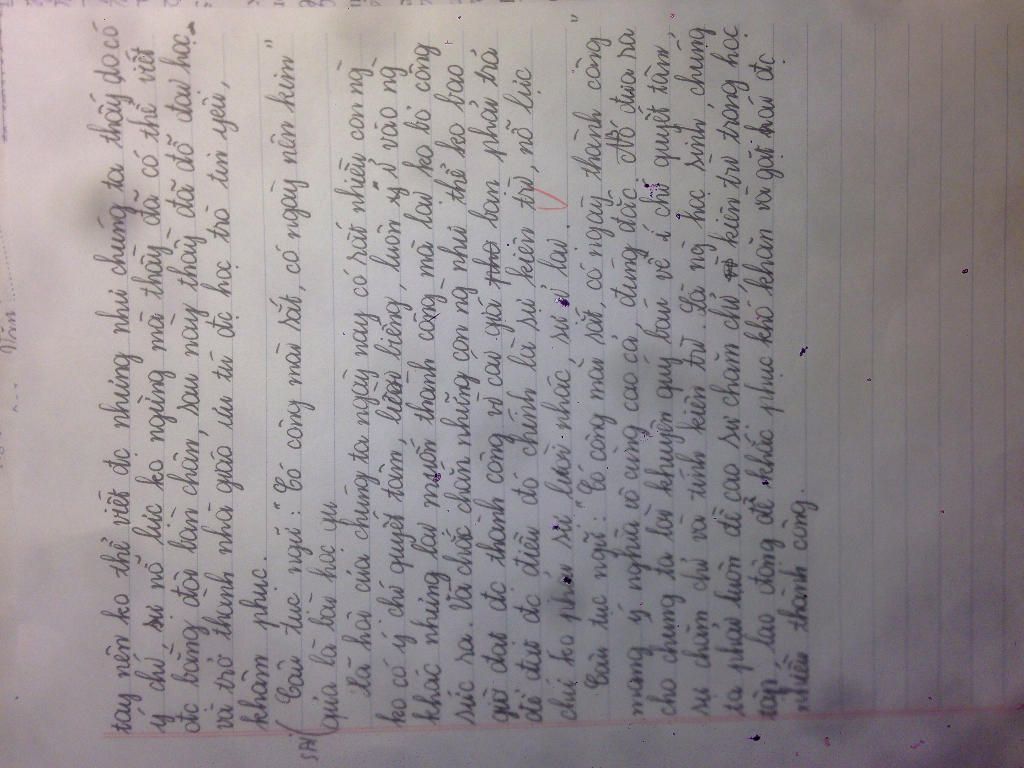 Văn
tay nên ko thể viết đc nhưng như chúng ta thấy do có
ý chí sự nỗ lực ko ngừng mà thầy đã có thể viết
đc bằng đôi bàn chân, sau này thầy đã đỗ đại học
và trở thành nhà giáo ưu tú đc học trò tin yêu,
khâm phục.
SAI ( Câu tục ngữ: "Có công mài sắt, có ngày nên kim"
quả là bài học quý
Xã hội của chúng ta ngày nay có rất nhiều con ng
ko có ý chí quyết tâm, lười biếng, luôn ỷ vào ng
khác nhưng lại muốn thành công mà lại ko bỏ công
sức ra. Và chắc chắn những con ng như thế ko bao
giờ đạt đc thành công vì cái giá bạn phải trả
để đạt đc điều đó chính là sự kiên trì, nỗ lực
chứ ko phải sự lười nhác sự ỷ lại.
Câu tục ngữ: "Có công mài sắt, có ngày thành công"
mang ý nghĩa vô cùng cao cả đúng đắc. Nó đưa ra
cho chúng ta lời khuyên quý báu về ý chí quyết tâm,
sự chăm chỉ và tính kiên trì. Là ng học sinh chúng
ta phải luôn đề cao sự chăm chỉ kiên trì trong học
tập, lao động để khắc phục khó khăn và gặt hái đc
nhiều thành công.